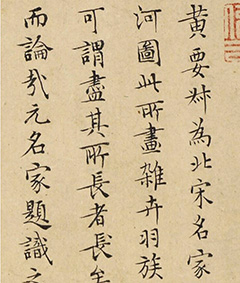 黃要叔為北宋名家
河圖此所畫雜卉羽族
可謂盡其所長者長
而論元名家題識